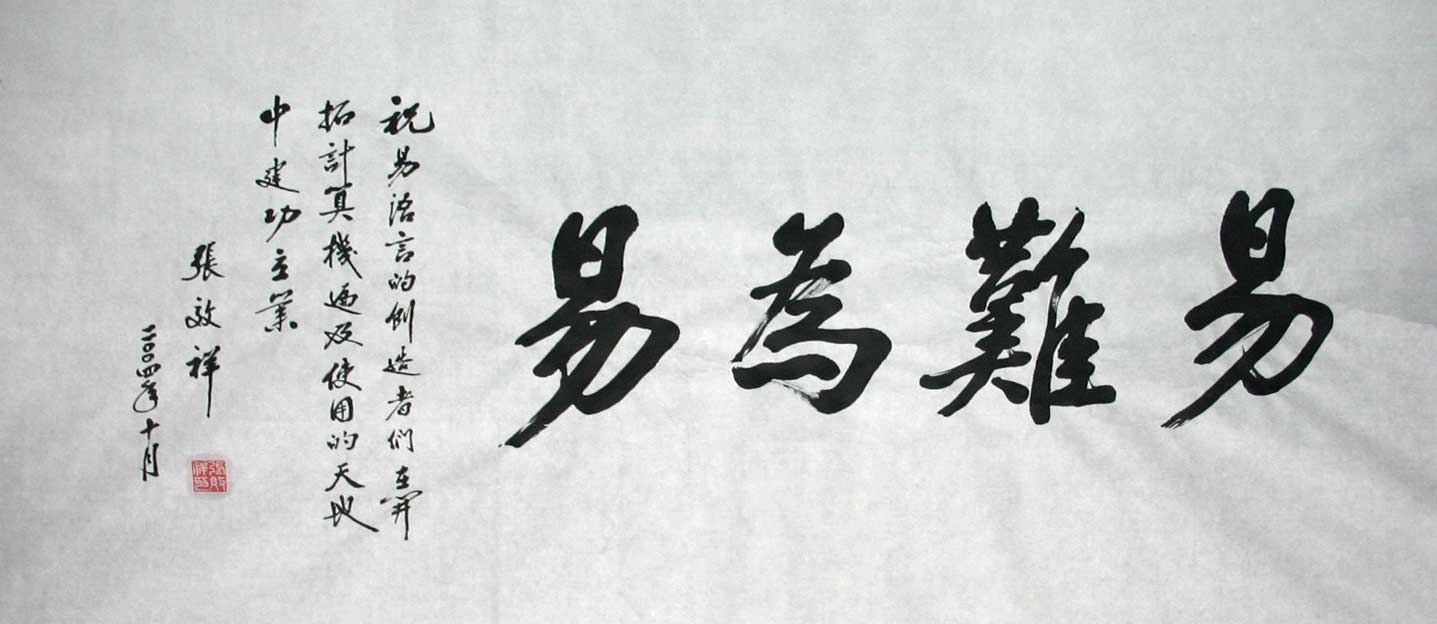 易難為易
祝易语言的创造者们在開
拓計算機遍及使用的天地
中建功立業
張效祥
二〇〇四年十月
張效祥印